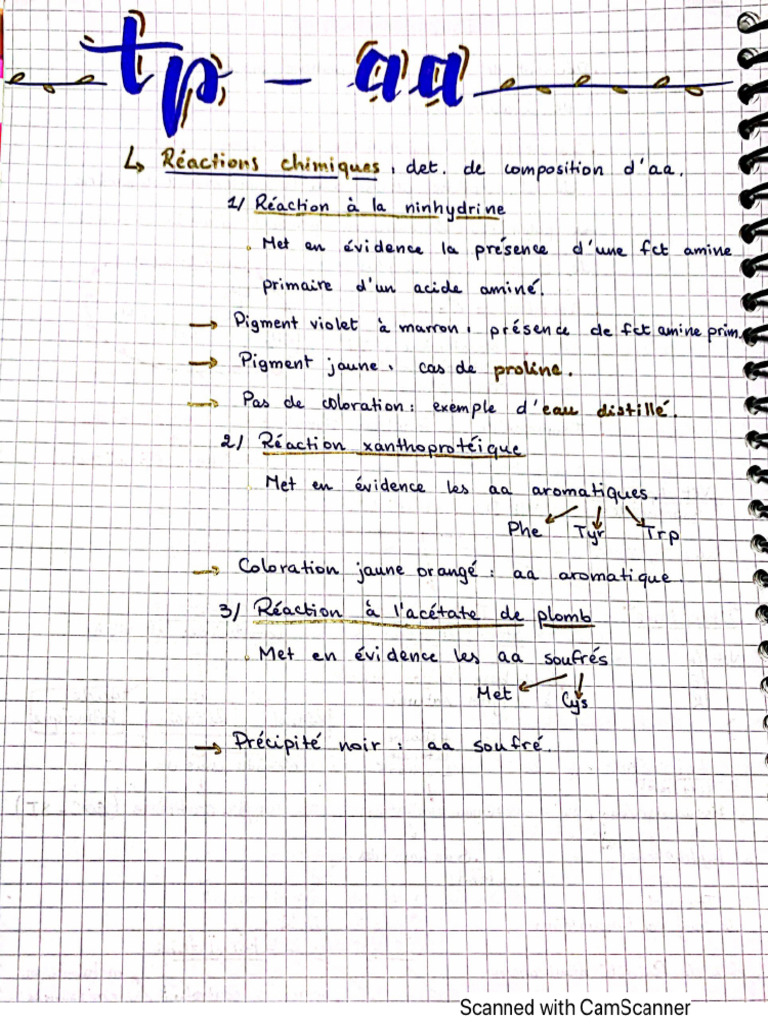 tp - aa
↳ Réactions chimiques : det. de composition d'aa.
1/ Réaction à la ninhydrine
. Met en évidence la présence d'une fct amine
primaire d'un acide aminé.
→ Pigment violet à marron : présence de fct amine prim.
→ Pigment jaune : cas de proline.
→ Pas de coloration : exemple d'eau distillé.
2/ Réaction xanthoprotéique
Met en évidence les aa aromatiques.
Phe Tyr Trp
→ Coloration jaune orangé : aa aromatique.
3/ Réaction à l'acétate de plomb
. Met en évidence les aa soufrés
Met Cys
→ Précipité noir : aa soufré.
Scanned with CamScanner